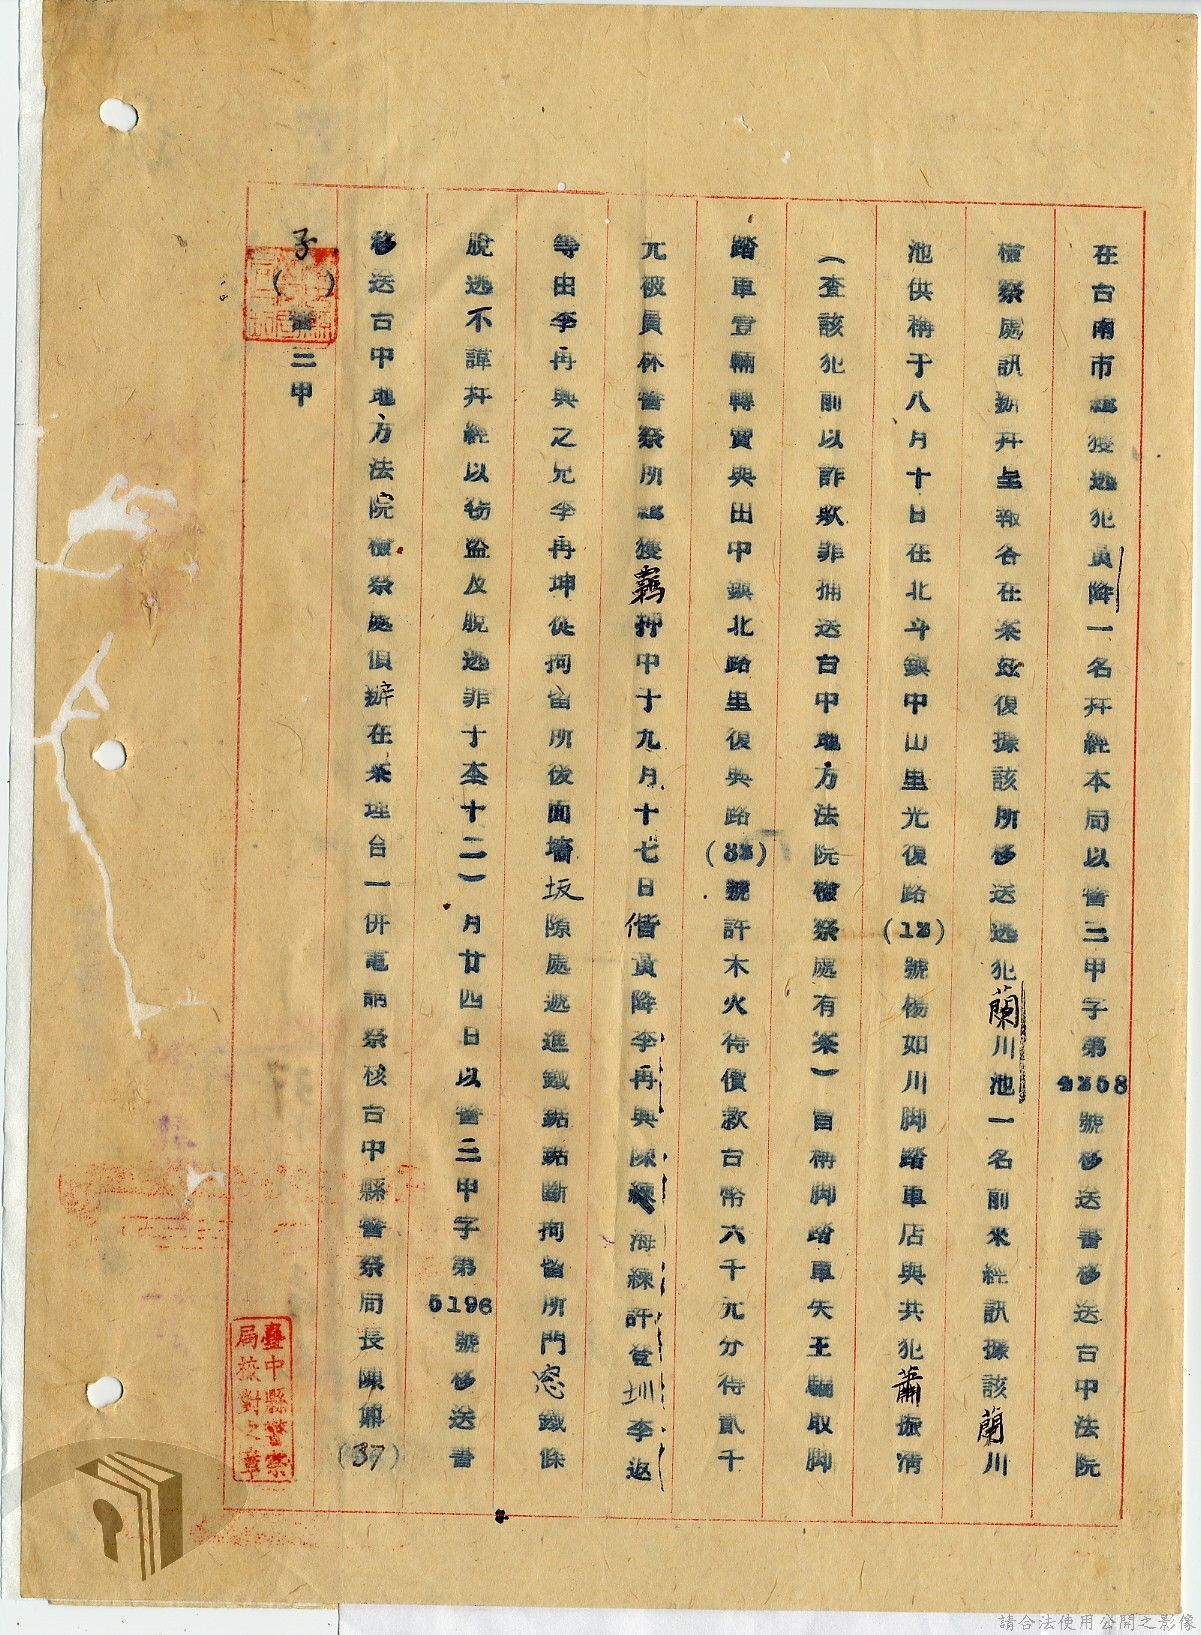 在台南市緝獲逃犯黃降一名幷經本局以警二甲字第4358號移送書移送台中法院
檢察處訊辦幷呈報各在案茲復據該所移送逃犯蘭川池一名前來經訊據該蘭川
池供稱于八月十日在北斗鎮中山里光復路(13)號楊如川脚踏車店與共犯蕭振清
(查該犯前以詐欺罪捕送台中地方法院檢察處有案)冒稱脚踏車失主騙取脚
踏車壹輛轉賣與田中鎮北路里復興路(33)號許木火得價款台幣六千元分得貳千
元被員林警察所緝獲羈押中于九月十七日偕黃降李再興陳海練許登圳李返
等由李再興之兄李再坤從拘留所後面墻坂隙處遞進鐵鋸鋸斷拘留所門窓鐵條
脫逃不諱幷經以竊盜及脫逃罪于本(十二)月廿四日以警二甲字第5196號移送書
移送台中地方法院檢察處偵辦在案理合一併電請察核台中縣警察局長陳鼎(37)
子( )警二甲
臺中縣警察局校對之章
請合法使用公開之影像